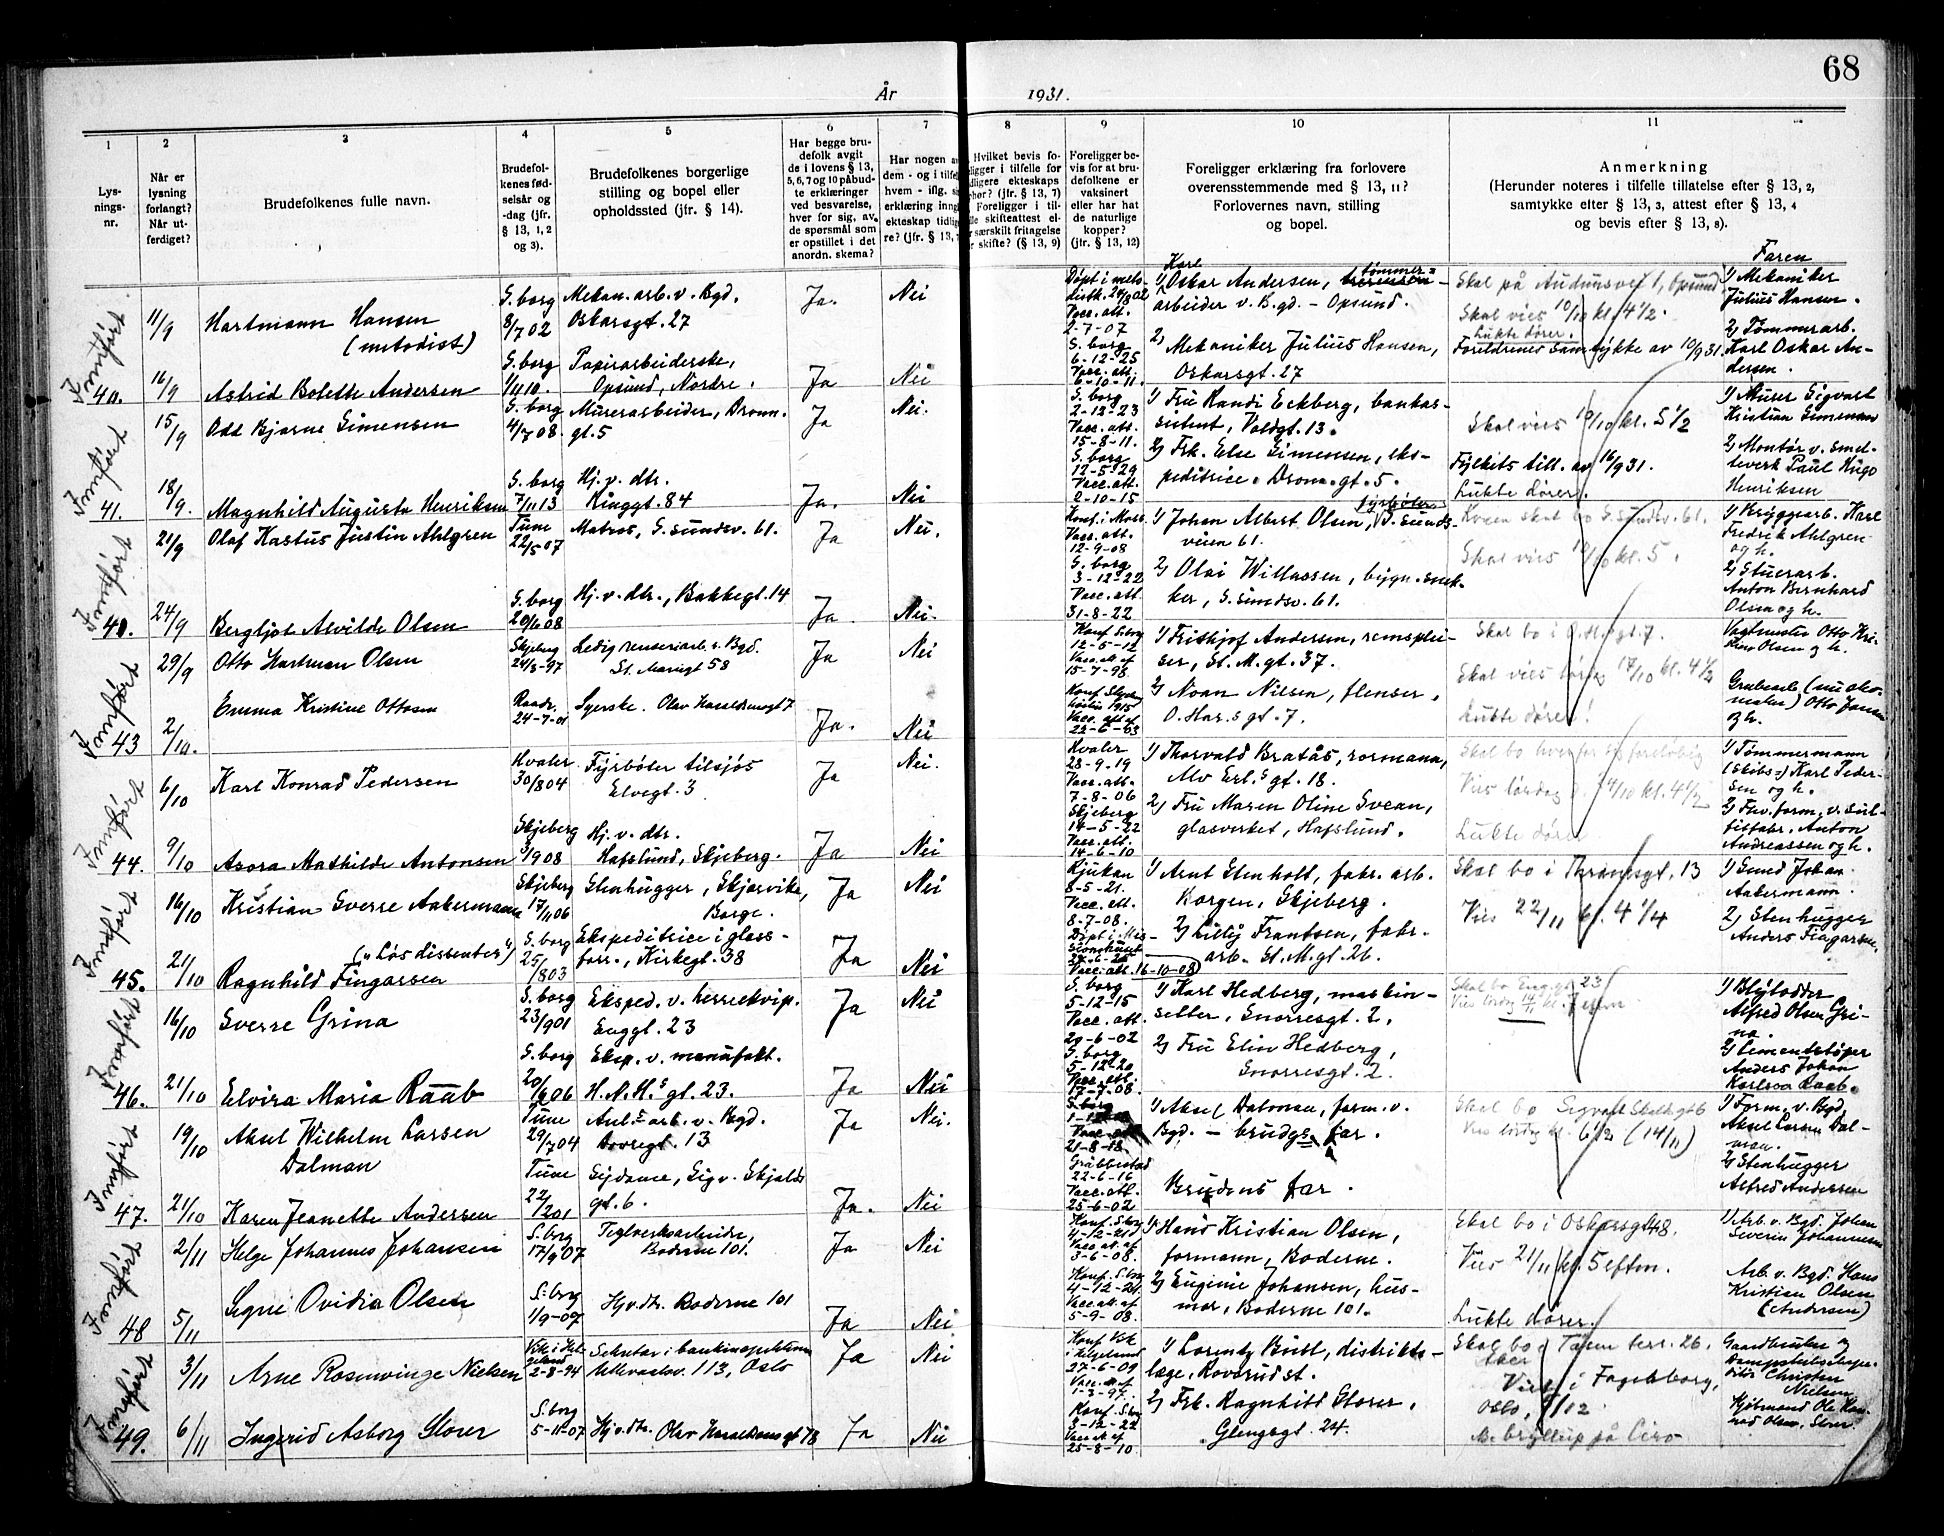 68
År 1931.
1 2 3 4 5 6 7 8 9 10 11
Lys-
nings-
nr.
Når er
lysning
forlangt?
Når ut-
ferdiget?
Brudefolkenes fulle navn.
Brudefol-
kenes fød-
selsår og
-dag (jfr.
§ 13, 1, 2
og 3).
Brudefolkenes borgerlige
stilling og bopel eller
opholdssted (jfr. § 14).
Har begge bru-
defolk avgit
de i lovens § 13,
5, 6, 7 og 10 påbud-
te erklæringer
ved besvarelse,
hver for sig, av
de spørsmål som
er opstillet i det
anordn. skema?
Har nogen av
dem - og i tilfelle
hvem - iflg. si
erklæring inng
ekteskap tidlig
re? (jfr. § 13,
Hvilket bevis fo-
ligger i tilfelle for
dligere ekteskaps
phør? (jfr. § 13, 7)
Foreligger i til-
lle skifteattest el-
r særskilt fritagelse
r skifte? (§ 13, 9)
Foreligger be-
vis for at bru-
defolkene er
vaksinert
eller har hat
de naturlige
kopper?
(jfr. § 13, 12)
Foreligger erklæring fra forlovere
overensstemmende med § 13, 11?
Forlovernes navn, stilling
og bopel.
Anmerkning
(Herunder noteres i tilfelle tillatelse efter § 13, 2,
samtykke efter § 13, 3, attest efter § 13, 4
og bevis efter § 13, 8).
Faren
Innført
40.
11/9 Hartmann Hansen
(metodist)
S.borg
8/7 02
Mekan. arb. v. Bgd.
Oskarsgt. 27
Ja. Nei
Døpt i meto-
distk. 24/8 02
Vacc. att.
2-7-07
1) Karl Oskar Andersen, tømmer-
arbeider v. Bgd. - Opsund.
Skal på Audunsvei 1, Opsund
Skal vies 10/10 kl. 4 1/2.
Lukte dører.
1) Mekaniker
Julius Hansen.
16/9 Astrid Bolette Andersen
S.borg
1/11 10.
Papirarbeiderske,
Opsund, Nordre.
Ja Nei
S.borg
6-12-25
Vacc. att.
6-10-11.
2) Mekaniker Julius Hansen,
Oskarsgt. 27
Foreldrenes samtykke av 10/9 31.
2) Tømmerarb.
Karl Oskar An-
dersen.
Innført
41.
15/9 Odd Bjarne Simensen
S.borg
4/7 08.
Murerarbeider, Dronn.
gt. 5
Ja Nei.
S.borg
2-12-23
Vacc. att.
15-8-11.
1) Fru Randi Eckberg, bankas-
sistent, Voldgt. 13.
Skal vies 10/10 kl. 5 1/2
1) Murer Sigvart
Kristian Simensen
18/9. Magnhild Augusta Henriksen
S.borg
7/11 13
Hj. v. dtr.
Ringgt. 84
Ja. Nei
S.borg
12-5-29
Vacc. att.
2-10-15
2) Frk. Else Simensen, eks-
peditrice. Dronn.gt. 5.
Fylkets till. av 16/9 31.
Lukte dører.
2) Montør v. smel-
teverk Paul Hugo
Henriksen
Innført
21/9 Olaf Rastus Justin Ahlgren
Tune
22/5 07
Matros, G.sundsv. 61.
Ja Nei.
Konf. i Moss
Vacc. att.
12-9-08
1) Johan Albert Olsen, fyrbøter, G.sunds-
veien 61.
Konen skal bo G.sundsv. 61.
Skal vies 10/10 kl. 5.
1) Bryggearb. Karl
Fredrik Ahlgren
og h.
24/9 Bergljot Alvilde Olsen
S.borg
20/1 08
Hj. v. dtr., Bakkegt. 14
Ja Nei.
S.borg
3-12-22
Vacc. att.
31-8-22
2) Olai Willassen, bygn. snek-
ker, G.sundsv. 61.
2) Stuerarb.
Anton Bernhard
Olsen og h.
Innført
43
29/9 Otto Hartman Olsen
Skjeberg
24/8-97
Ledig renseriarb. v. Bgd.
St. Mariegt 58
Ja Nei
Konf. S.borg
12-5-12
Vacc. att. af
15-7-98.
1) Frithjof Andersen, remsplei-
ser, St. M. gt. 37.
Skal bo i O.H.s gt. 7.
Skal vies lørdag 17/10 kl. 4 1/2
Vagtmester Otto Kri-
Olsen og h.
2/10. Emma Kristine Ottosen
Raade
24-7-01
Syerske. Olav Haraldsonsgt 7
Ja. Nei
1915
Vacc. att af
22-6-03
2) Noan Nilsen, flenser,
O. Har.s gt. 7.
Lukte dører!
Otto Jansen
og h.
Innført
44.
6/10 Karl Konrad Pedersen
Hvaler
30/8 04
Fyrbøter tilsjøs
Elvegt. 3
Ja Nei.
Hvaler
28-9-19
Vacc. att.
7-8-06
1) Thorvald Bratås, rormann,
Alv Erl.s gt. 18.
Skal bo hver for sig foreløbig
Vies lørdag 24/10 kl. 4 1/2
1) Tømmermann
(Skibs-) Karl Peder-
sen og h.
9/10 Asora Mathilde Antonsen
Skjeberg
3/9 08
Hj. v. dtr.
Hafslund, Skjeberg.
Ja Nei
Skjeberg
14-5-22
Vacc. att.
14-6-10
2) Fru Maren Oline Svean,
glasverket, Hafslund.
Lukte dører
2) Fhv. form. v. Sul-
fitfabr. Anton
Andreassen og h.
Innført
45.
16/10 Kristian Sverre Aakermann
Skjeberg
17/11 06
Stenhugger, Skjærvika,
Borge.
Ja Nei
Rjukan
8-5-21.
Vacc. att.
8-7-08.
1) Arnt Stenholt, fabr. arb.
Borgen, Skjeberg.
Skal bo i Thranesgt. 13
Vies 22/11 kl. 4 1/4
1) Smed Johan
Aakermann.
21/10 („Løs dissenter")
Ragnhild Fingarsen
S.borg
25/8 03
Ekspeditrice i glass-
forr., Kirkegt. 38
Ja Nei
Døpt i Mis-
Vacc. att. 16-10-08
2) Lilly Frantsen, fabr.
arb. St. M. gt. 26.
2) Stenhugger
Anders Fingarsen.
Innført
46.
16/10 Sverre Grina
S.borg
23/9 01
Eksped. v. herreekvip.
Enggt. 23
Ja Nei
S.borg
5-12-15
Vacc. att.
29-6-02
1) Karl Hedberg, maskin-
setter, Snorresgt. 2,
Skal bo Enggt 23
Vies lørdag 14/11 kl. 7 efm
1) Blylodder
Alfred Olsen Gri-
na.
21/10 Elvira Maria Raab
S.borg
20/6 06
Eksp. v. manufakt.
H.N.H.s gt. 23.
Ja Nei
S.borg
5-12-20
Vacc. att.
17-7-08.
2) Fru Elin Hedberg,
Snorresgt. 2.
2) Cementstøper
Anders Johan
Karlson Raab.
Innført
47.
19/10 Aksel Wilhelm Larsen
Dalman
Tune
29/7 04
Anl.s arb. v. Bgd.
Dovregt. 13
Ja Nei.
S.borg
Vacc. att
21-8-18.
1) Aksel Dalman, form. v.
Bgd. - brudgs far.
Skal bo Sigvat Skaldsgt 6
Vies lørdag kl. 6 1/2 (14/11)
1) Form. v. Bgd.
Aksel Larsen Dal-
man.
21/10 Karen Jeanette Andersen
Tune
22/2 01
Syedame, Sigv. Skjalds
gt. 6.
Ja. Nei
Grabbestad
22-6-16
Vacc. att.
25-6-02
Brudens far.
2) Stenhugger
Alfred Andersen
Innført
48
2/11 Helge Johannes Johansen
S.borg
17/9 07
Teglverksarbeider,
Boderne 101.
Ja Nei
Konf. S.borg
4-12-21
Vacc. att. af
3-6-08.
1) Hans Kristian Olsen,
formann, Boderne.
Skal bo i Oskarsgt 48.
Vies 21/11 kl. 5 eftm.
1) Arb. v. Bgd. Johan
Severin Johannesen
5/11 Signe Ovidia Olsen
S.borg
1/9-07
Hj.v.dtr. Boderne 101
Ja Nei
Konf. S.borg
4-12-21.
Vacc. att. af
5-9-08.
2) Eugenie Johansen, hus-
mor, Boderne 101.
Lukte dører.
Arb. v. Bgd. Hans
Kristian Olsen
(Andersen)
Innført
49.
3/11 Arne Rosenvinge Nielsen
2-8-94
Sekretær i bankinspektionen
Ullevaalsv. 113, Oslo
Ja Nei
27-6-09
1-3-97.
1) Lorentz Bull, distrikts-
læge, Rovsrud st.
Skal bo Taasen terr. 26.
Aker
Vies i Fagerborg,
Oslo, 5/12.
Gaardbruker og
Christen
Nielsen
6/11 Ingerid Asborg Storer
S.borg
5-11-07
Hj.v.dtr. Olav Haraldsons gt 78
Ja Nei
Konf. S.bg
3-12-22
25-8-10.
2) Frk. Ragnhild Storer,
Glengsgt. 24.
bryllup på Ciro
Kjøbmand Ole Kon-
rad Olsen Storer